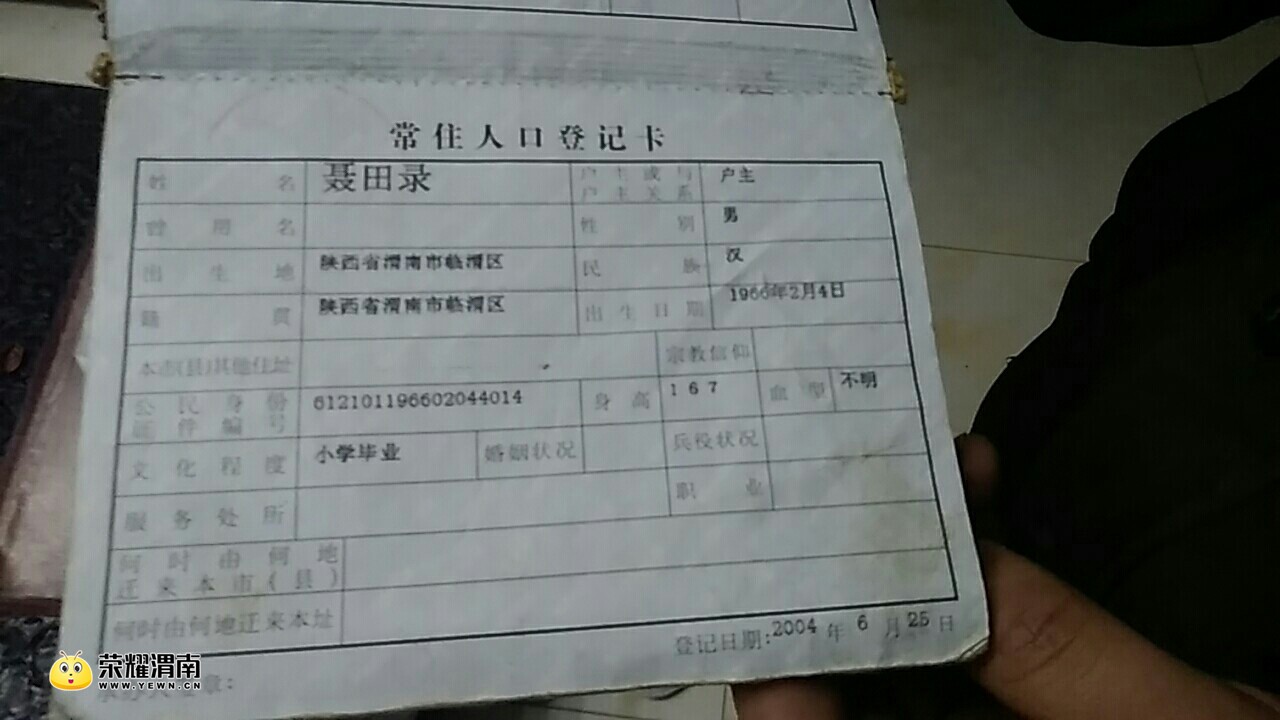 常住人口登记卡
姓名 聂田录 户主或与户主关系 户主
曾用名 性别 男
出生地 陕西省渭南市临渭区 民族 汉
籍贯 陕西省渭南市临渭区 出生日期 1966年2月4日
本市(县)其他住址 宗教信仰
公民身份证件编号 612101196602044014 身高 167 血型 不明
文化程度 小学毕业 婚姻状况 兵役状况
服务处所 职业
何时由何地迁来本市(县)
何时由何地迁来本址
登记日期:2004年6月25日
章:
荣耀渭南
WWW.YEWN.CN